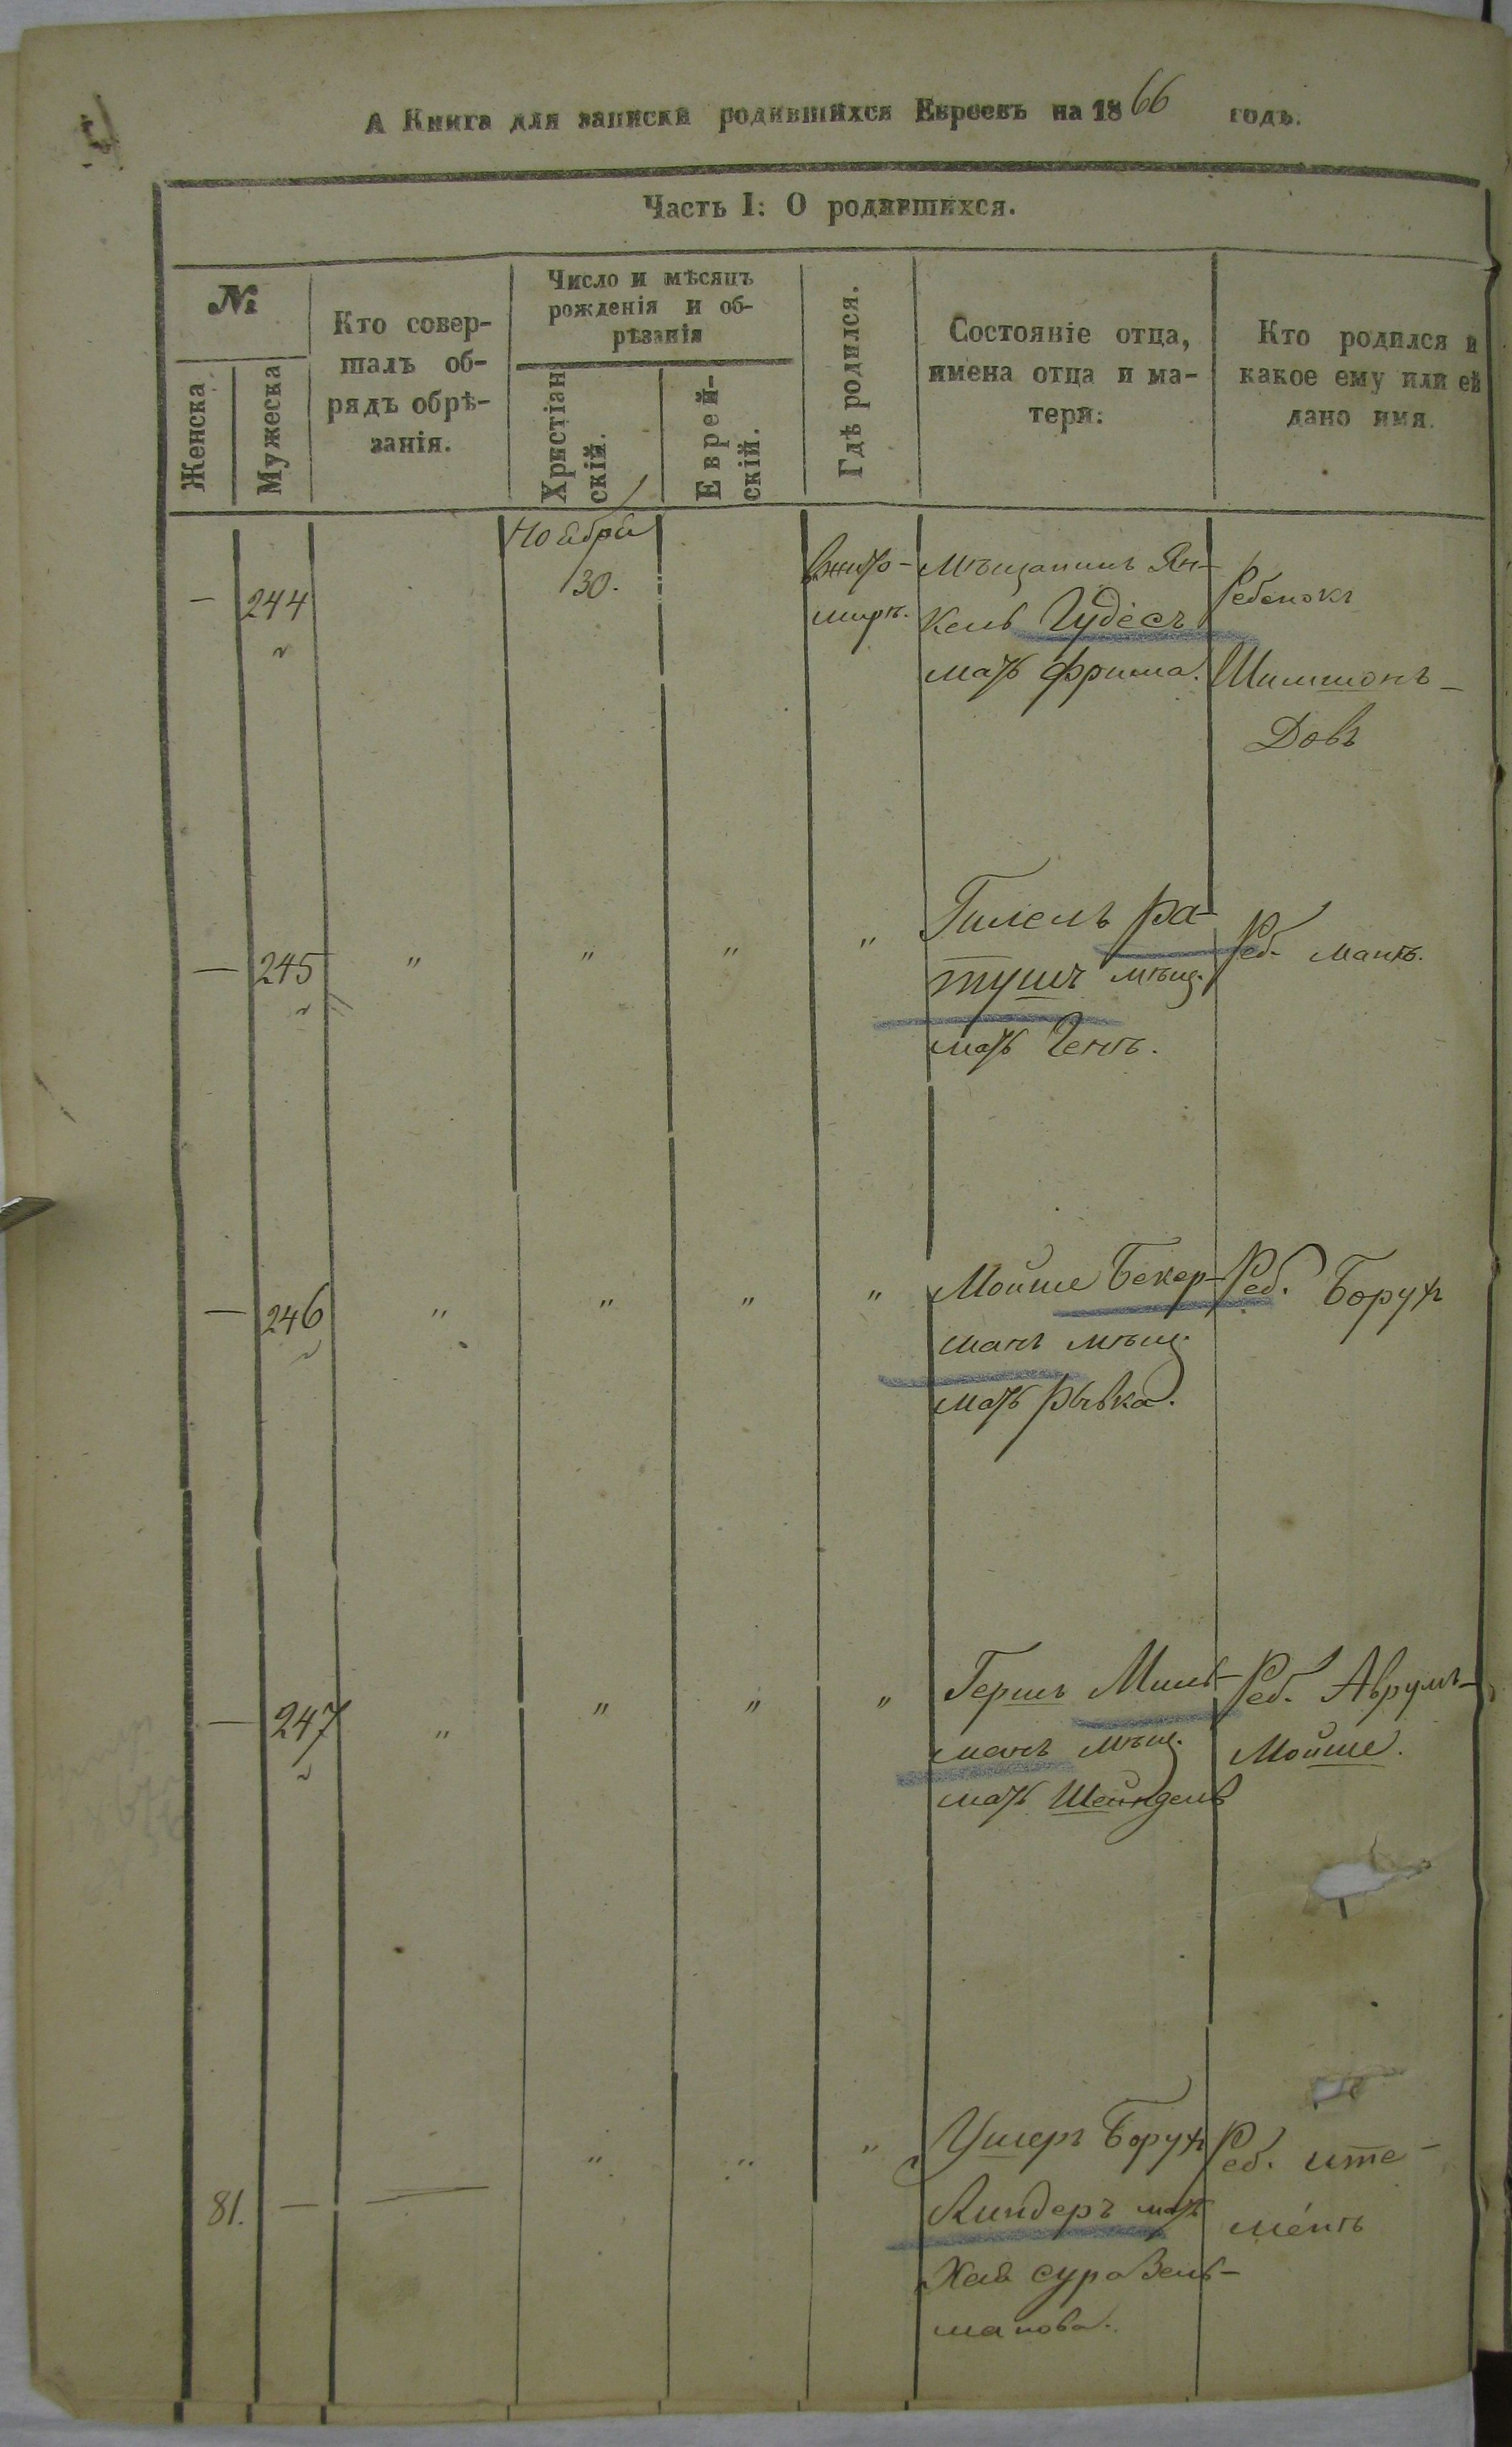 А Книга для записки родившихся Евреевъ на 1866 годъ.
Часть I: О родившихся.
№
Женска
Мужеска
Кто совер-
шалъ об-
рядъ обрѣ-
занія.
Число и мѣсяцъ
рожденія и об-
рѣзанія
Христіан
скій.
Еврей-
скій.
Гдѣ родился.
Состояніе отца,
имена отца и ма-
тери:
Кто родился и
какое ему или ей
дано имя.
— 244
Ноября
30.
Вжито-
мирѣ.
Мѣщанинъ Ян-
кель Чудесъ
мать Фрима.
Ребенокъ
Шимшонъ-
Довъ
— 245 " " " "
Гилель Ра-
тушъ мѣщ.
мать Ченѣ.
Реб. Манѣ.
— 246 " " " "
Мойше Бекер-
манъ мѣщ.
мать Рывка.
Реб. Борухъ
— 247 " " " "
Гершъ Миль-
манъ мѣщ.
мать Шейндель
Реб. Аврумъ-
Мойше.
81. — — " " "
Ушеръ Борухъ
Киндеръ мать
Хая Сура Зель-
манова.
Реб. ите-
менѣ